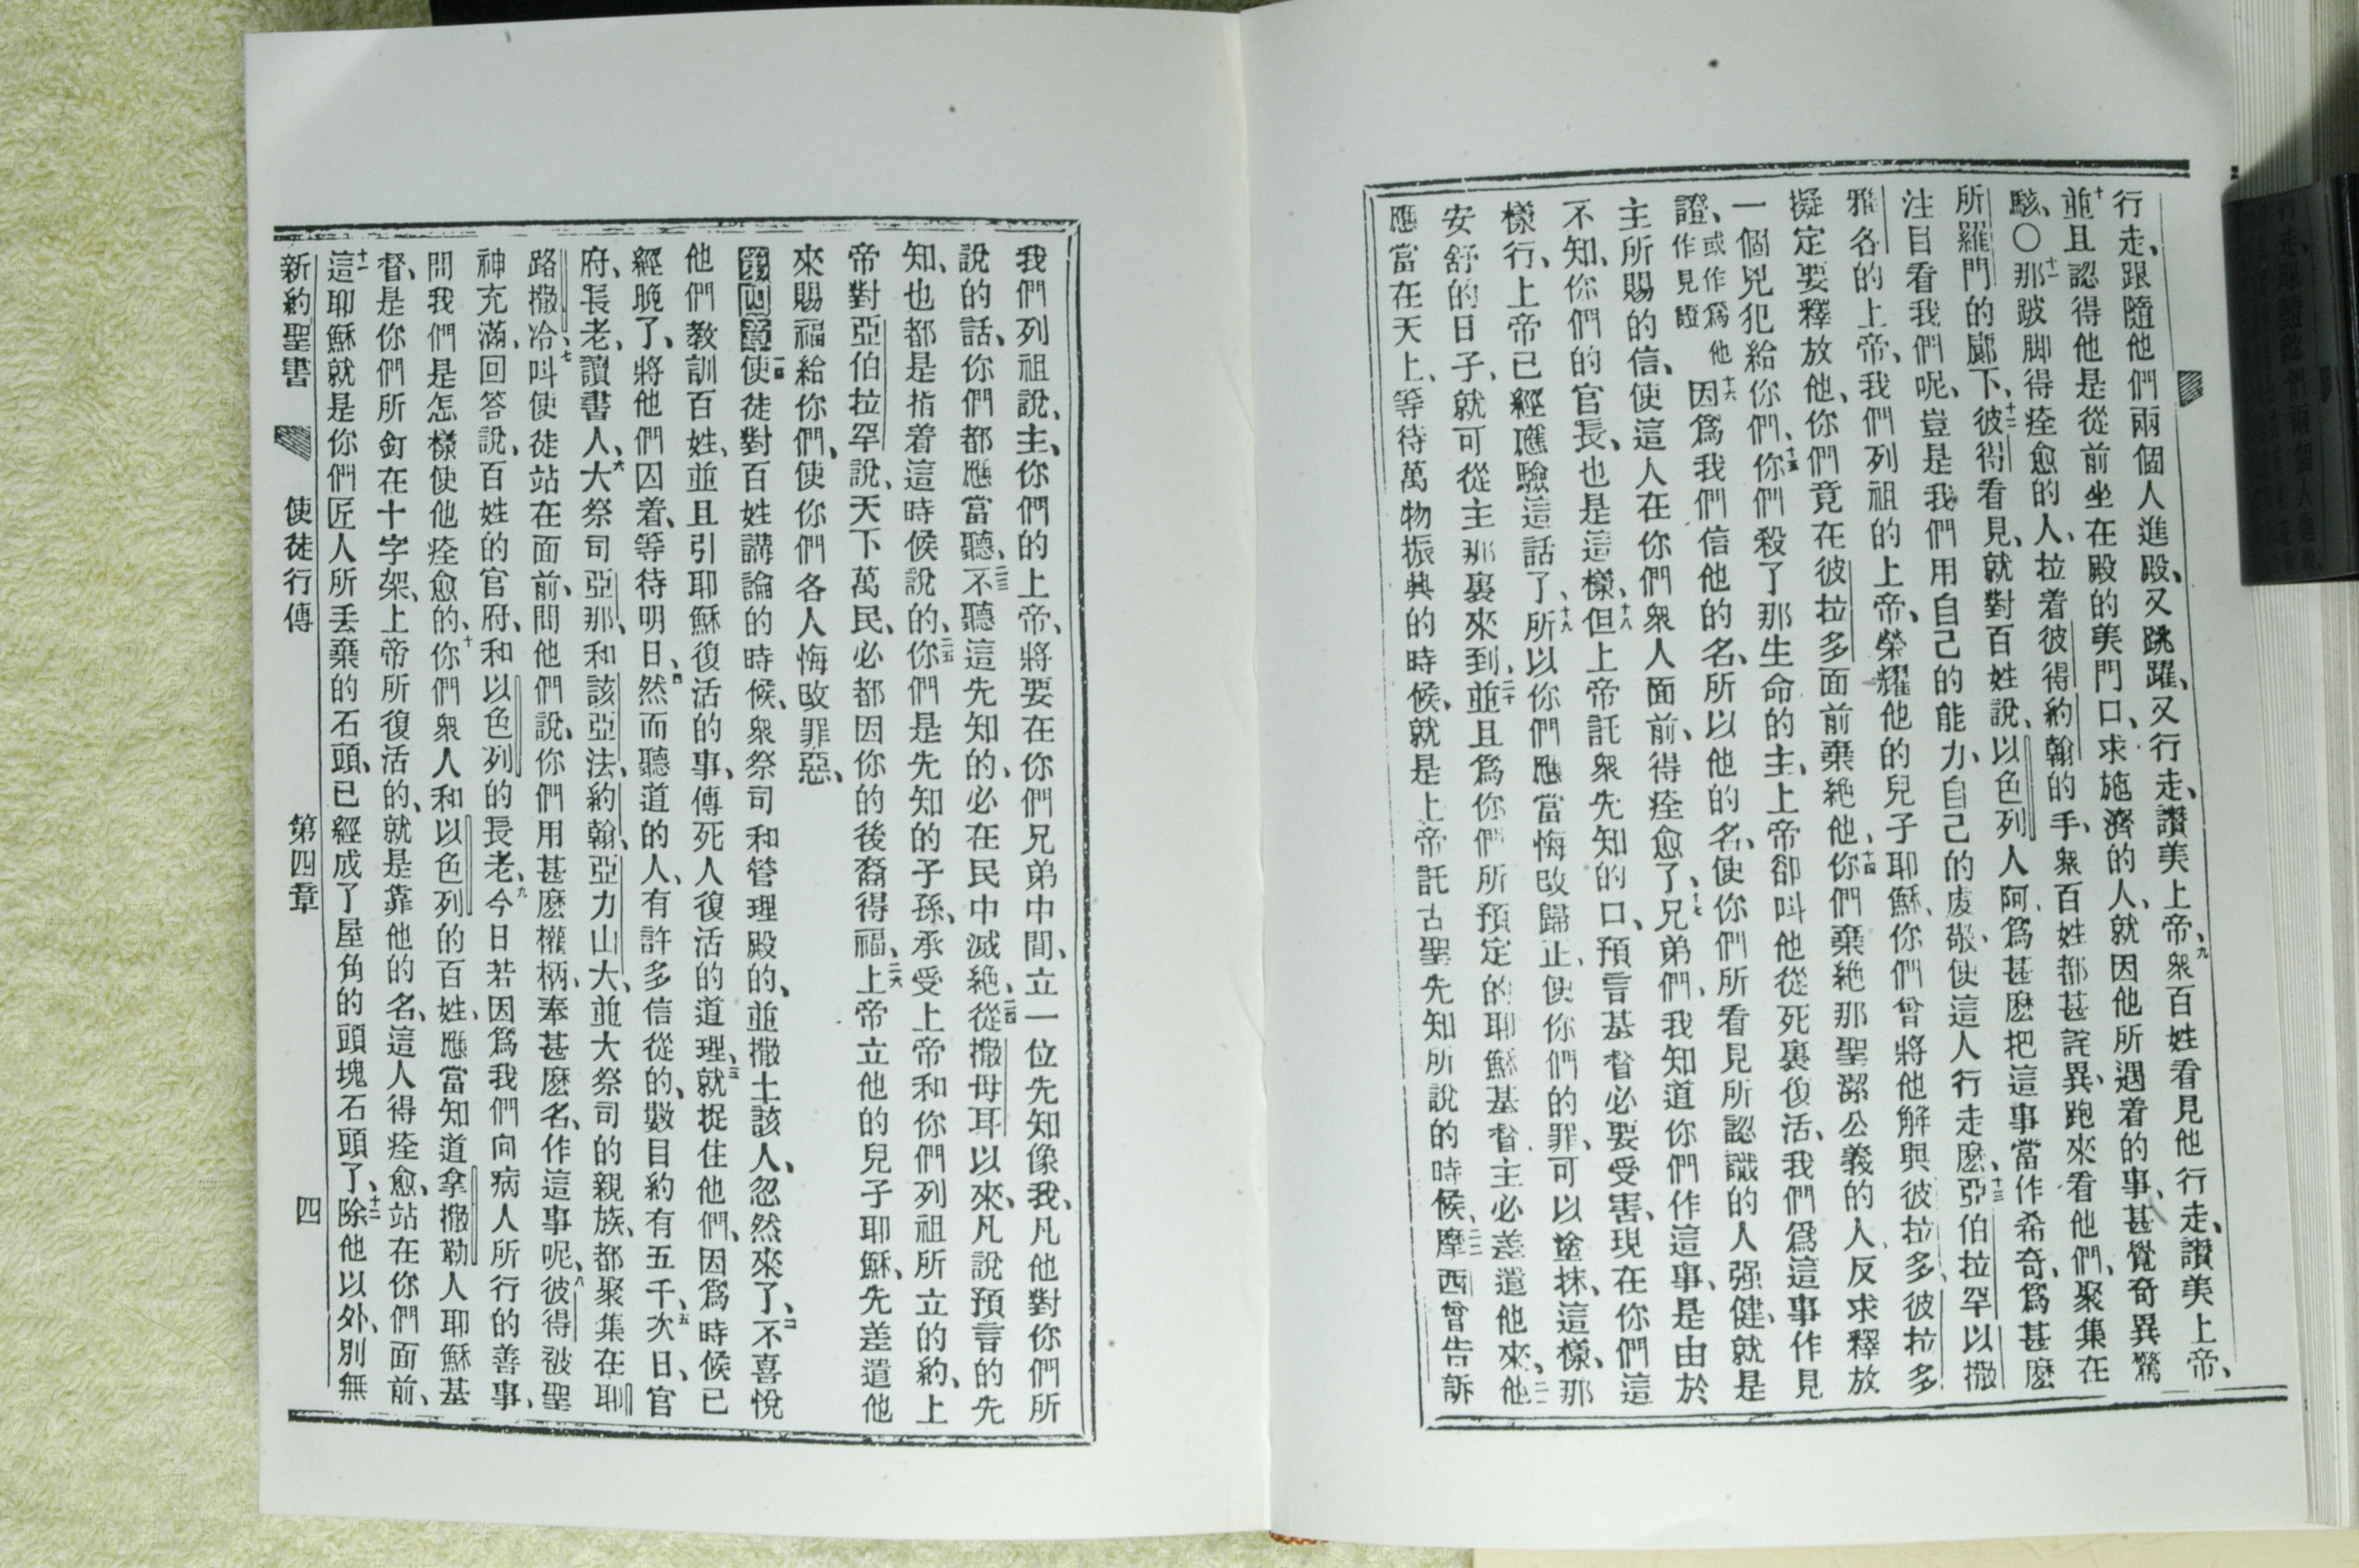 行走、跟隨他們兩個人進殿、又跳躍、又行走、讚美上帝、九衆百姓看見他行走、讚美上帝、
十並且認得他是從前坐在殿的美門口、求施濟的人、就因他所遇着的事、甚覺奇異驚
駭、〇十一那跛脚得痊愈的人、拉着彼得約翰的手、衆百姓都甚詫異、跑來看他們、聚集在
所羅門的廊下、十二彼得看見、就對百姓說、以色列人阿、爲甚麽把這事當作希奇、爲甚麽
注目看我們呢、豈是我們用自己的能力、自己的虔敬、使這人行走麽、十三亞伯拉罕以撒
雅各的上帝、我們列祖的上帝、榮耀他的兒子耶穌、你們曾將他解與彼拉多、彼拉多
擬定要釋放他、你們竟在彼拉多面前棄絶他、十四你們棄絶那聖潔公義的人、反求釋放
一個兇犯給你們、十五你們殺了那生命的主、上帝卻叫他從死裏復活、我們爲這事作見
證、或作爲他作見證十六因爲我們信他的名、所以他的名、使你們所看見所認識的人强健、就是
主所賜的信、使這人在你們衆人面前、得痊愈了、十七兄弟們、我知道你們作這事、是由於
不知、你們的官長、也是這樣、十八但上帝託衆先知的口、預言基督必要受害、現在你們這
樣行、上帝已經應驗這話了、十九所以你們應當悔改歸正、使你們的罪、可以塗抹、這樣、那
安舒的日子、就可從主那裏來到、二十並且爲你們所預定的耶穌基督主必差遣他來、二一他
應當在天上、等待萬物振興的時候、就是上帝託古聖先知所說的時候、二二摩西曾告訴
我們列祖說、主、你們的上帝、將要在你們兄弟中間、立一位先知像我、凡他對你們所
說的話、你們都應當聽、二三不聽這先知的、必在民中滅絶、二四從撒母耳以來、凡說預言的先
知、也都是指着這時候說的、二五你們是先知的子孫、承受上帝和你們列祖所立的約、上
帝對亞伯拉罕說、天下萬民、必都因你的後裔得福、二六上帝立他的兒子耶穌、先差遣他
來賜福給你們、使你們各人悔改罪惡、
第四章一使徒對百姓講論的時候、衆祭司和管理殿的、並撒土該人、忽然來了、二不喜悅
他們教訓百姓、並且引耶穌復活的事、傳死人復活的道理、三就捉住他們、因爲時候已
經晚了、將他們囚着、等待明日、四然而聽道的人、有許多信從的、數目約有五千、五次日、官
府、長老、讀書人、六大祭司亞那、和該亞法、約翰、亞力山大、並大祭司的親族、都聚集在耶
路撒冷、七叫使徒站在面前、問他們說、你們用甚麽權柄、奉甚麽名、作這事呢、八彼得被聖
神充滿、回答說、百姓的官府、和以色列的長老、九今日若因爲我們向病人所行的善事、
問我們是怎樣使他痊愈的、十你們衆人和以色列的百姓、應當知道拿撒勒人耶穌基
督、是你們所釘在十字架、上帝所復活的、就是靠他的名、這人得痊愈、站在你們面前、
十一這耶穌就是你們匠人所丟棄的石頭、已經成了屋角的頭塊石頭了、十二除他以外、別無
新約聖書 使徒行傳 第四章 四